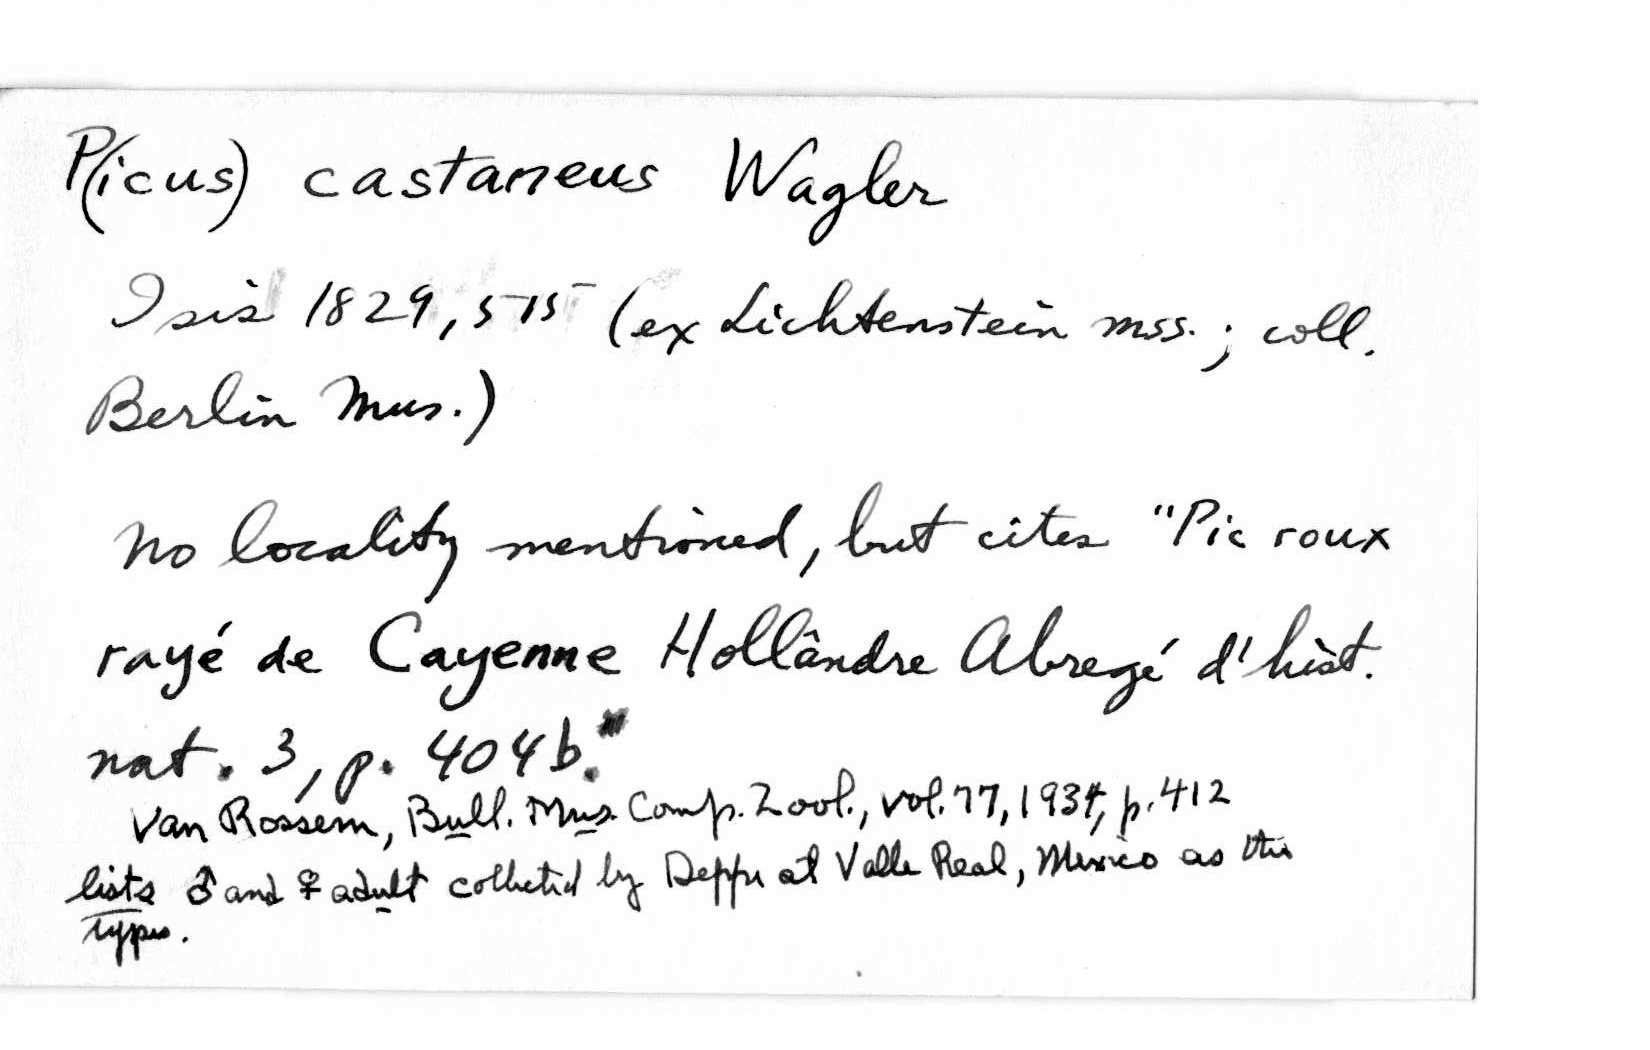 P(icus) castaneus Wagler
Isis 1829, 515 (ex Lichtenstein mss.; coll.
Berlin Mus.)
No locality mentioned, but cites "Pic roux
rayé de Cayenne Hollândre Abregé d'hist.
nat. 3, p. 404b."
Van Rossem, Bull. Mus. Comp. Zool., vol. 77, 1934, p. 412
lists ♂ and ♀ adult collected by Deppe at Valle Real, Mexico as the
types.